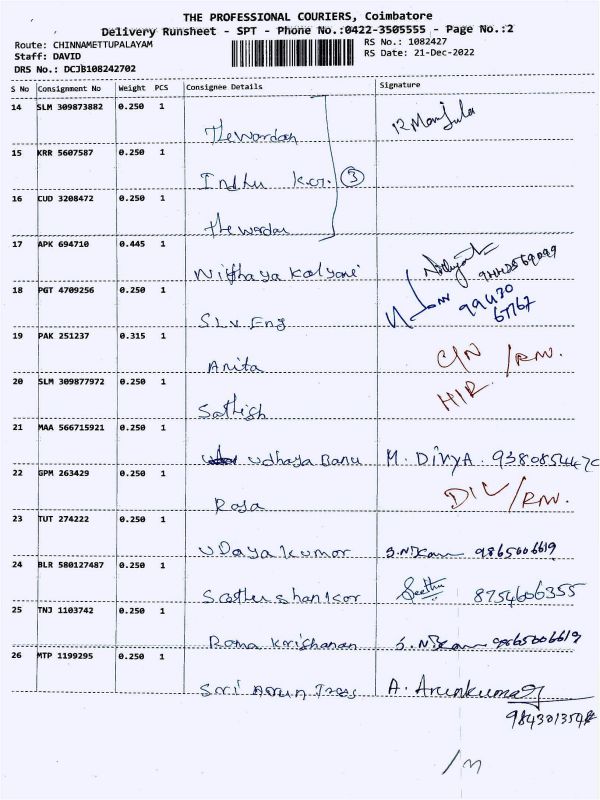 THE PROFESSIONAL COURIERS, Coimbatore
Delivery Runsheet - SPT - Phone No.:0422-3505555 - Page No.:2
Route: CHINNAMETTUPALAYAM RS No.: 1082427
Staff: DAVID RS Date: 21-Dec-2022
DRS No.: DCJB108242702
S No Consignment No Weight PCS Consignee Details Signature
14 SLM 309873882 0.250 1
The wardan R Manjula
15 KRR 5607587 0.250 1
Indhu 3
16 CUD 3208472 0.250 1
The wardan
17 APK 694710 0.445 1
Nithya Kalyani
18 PGT 4709256 0.250 1
99430
67767
S.L.V. Eng
19 PAK 251237 0.315 1
C/N /RW.
Anita
HIR
20 SLM 309877972 0.250 1
Sathish
21 MAA 566715921 0.250 1
Udhaya Banu M. DIVYA. 9380854470
22 GPM 263429 0.250 1
DIL/RW.
Roja
23 TUT 274222 0.250 1
UDaya kumar 9865006619
24 BLR 580127487 0.250 1
Sathu shankar Seethu 8754606355
25 TNJ 1103742 0.250 1
Rama Krishanan 9865006619
26 MTP 1199295 0.250 1
Sri Arun A. Arunkumar